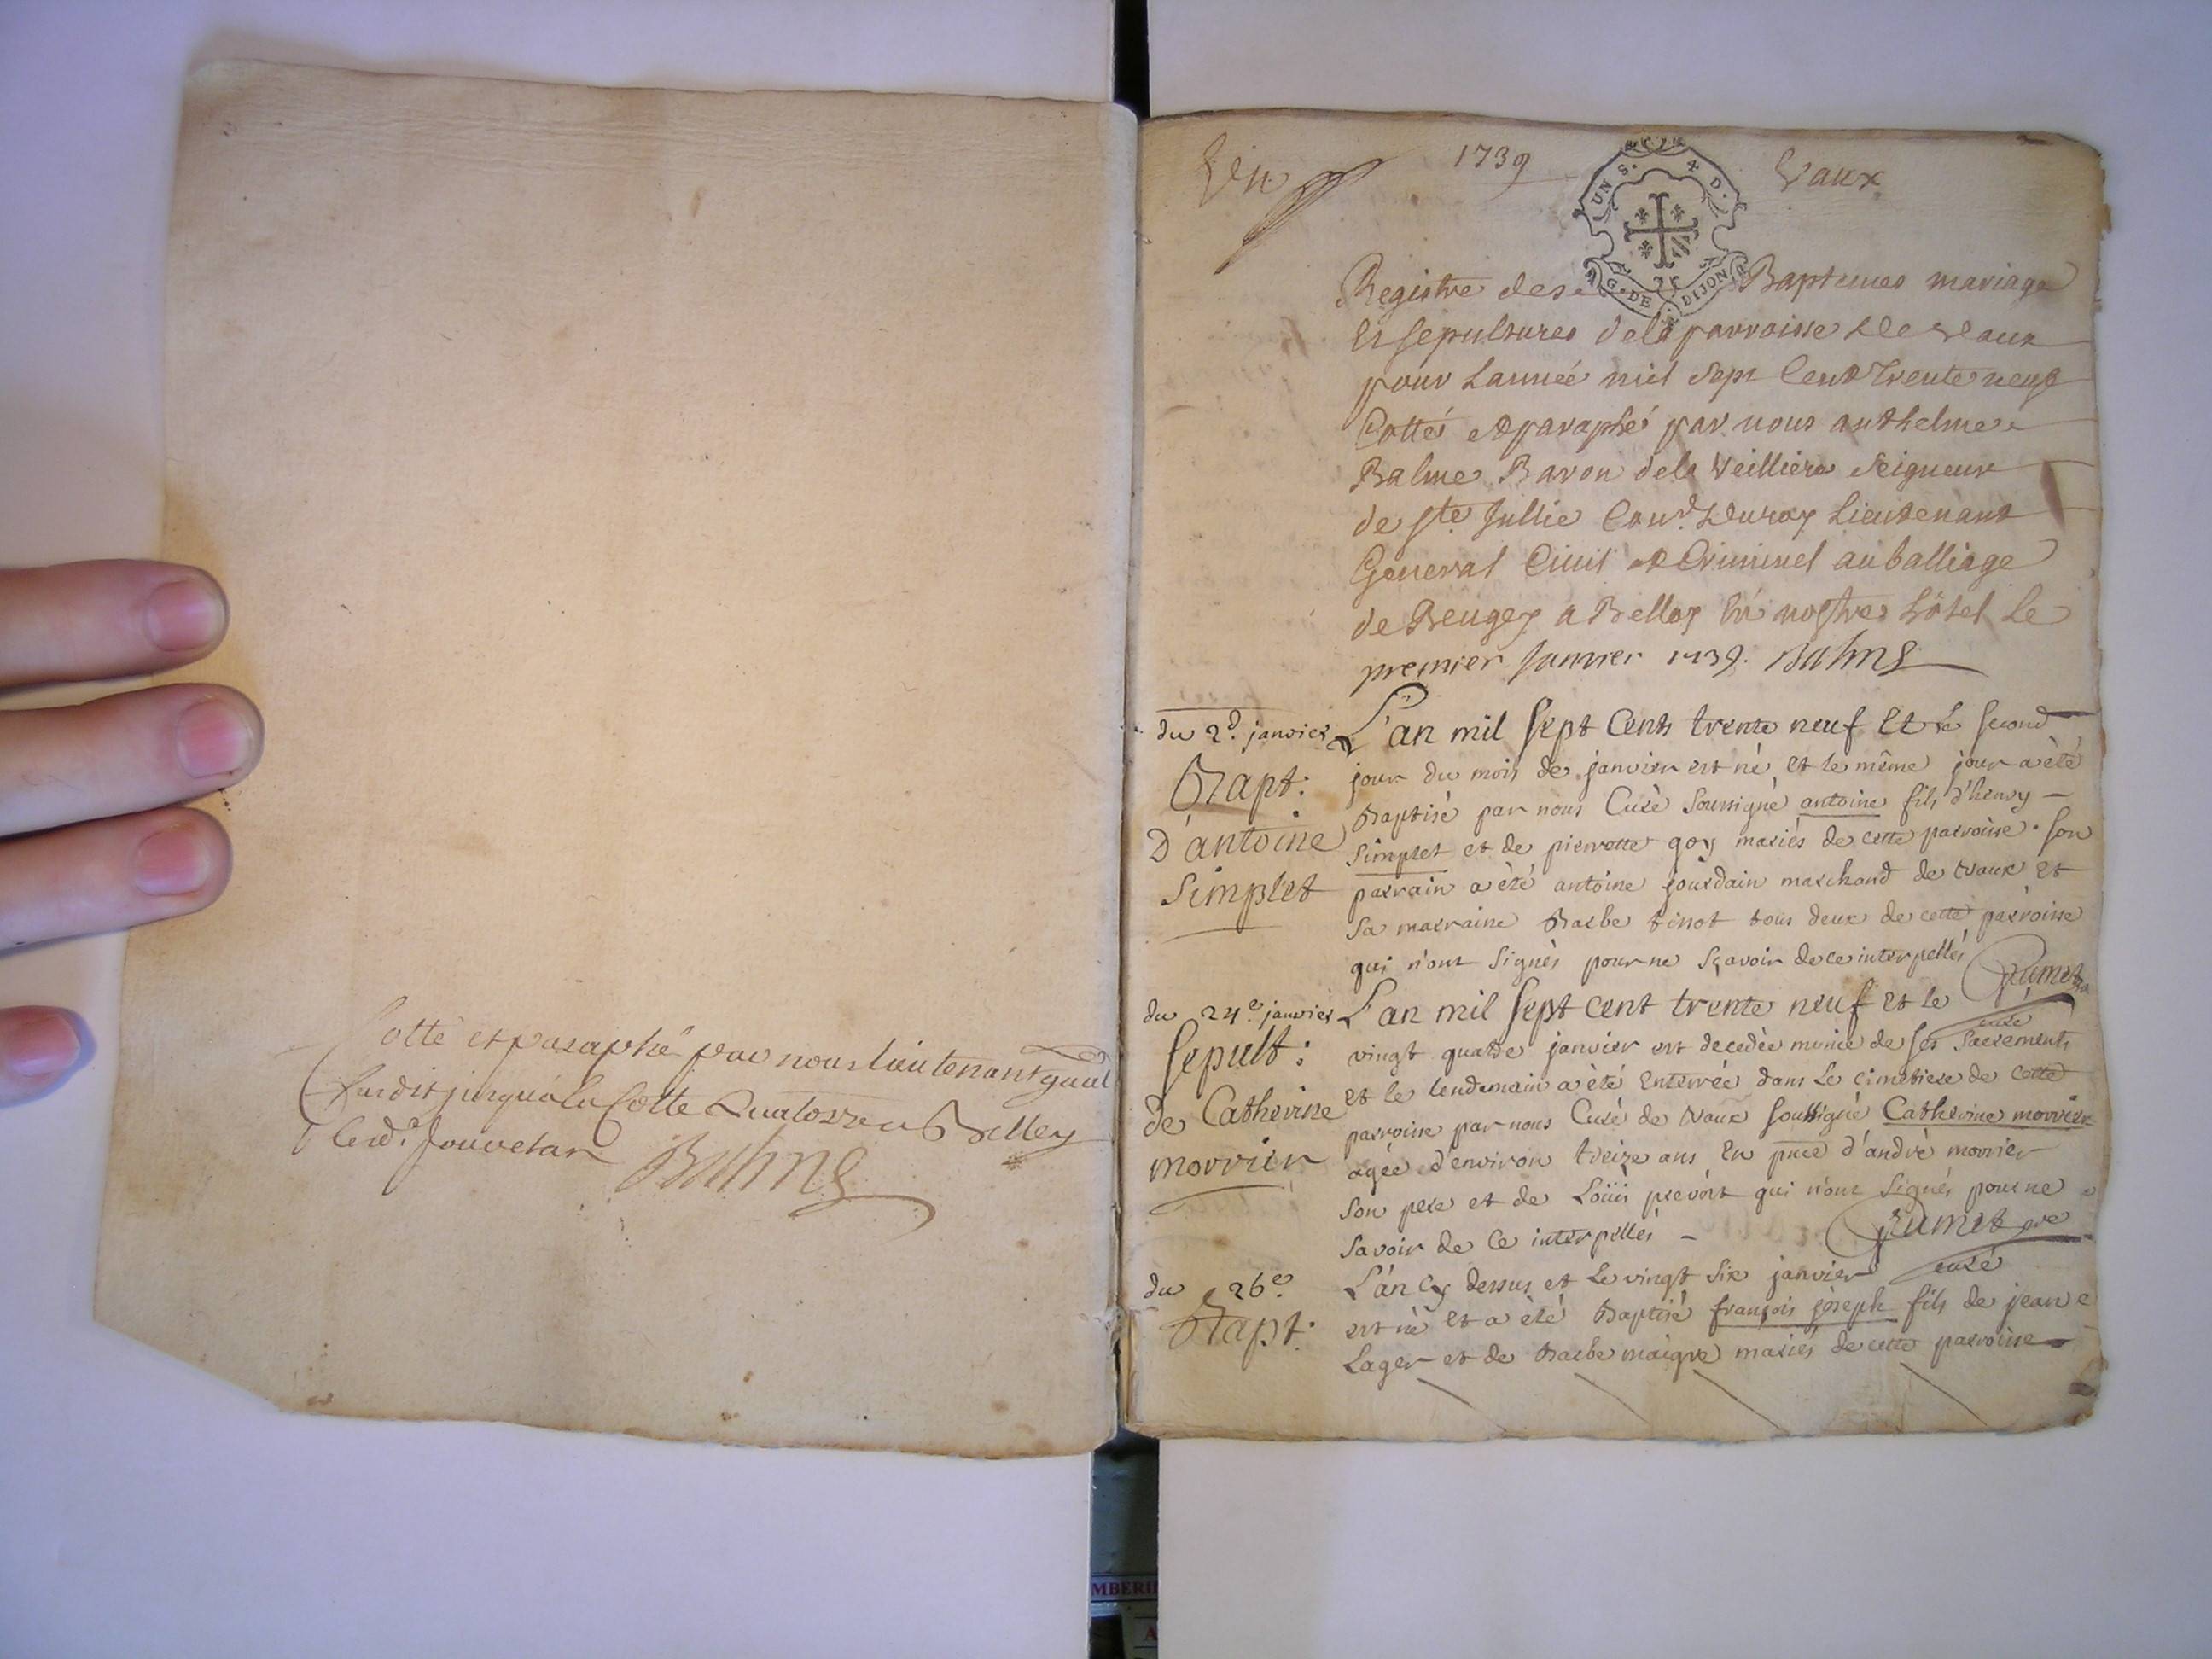 Cotté et paraphé par nous lieutenant gnal
susdit jusqua la Cotte Quatorze a Belley
led. Jour et an
Balme
1739
Vaux
UN S. D.
G. DE DIJON
Registre des Baptemes mariage
Et sepultures de la parroisse de Vaux
pour Lannée mil sept Cent Trente neuf
Cotté et paraphé par nous anthelme
Balme Baron dela Veilliere Seigneur
de ste Jullie Con.er Du roy Lieutenant
General Civil et Criminel au balliage
de Beugey a Belley En nostre hôtel Le
premier Janvier 1739. Balme
du 2d. janvier
Bapt:
D'antoine
Simplet
L'an mil sept Cents trente neuf Et Le second
jour du mois de janvier est né, Et le même jour a èté
Baptisé par nous Curé Soussigné antoine fils d'henry
Simplet et de pierrotte goy mariés de cette parroisse. Son
parrain a èté antoine jourdain marchand de Vaux Et
Sa marraine Barbe tinot tous deux de cette parroisse
qui n'ont Signés pour ne Sçavoir de ce interpellés
Rumet
curé
du 24e. janvier
Sepult:
de Catherine
morrier
L'an mil sept cent trente neuf et le
vingt quatre janvier est decedée munie de ses Sacrements
Et le lendemain a èté Enterrée dans Le cimetiere de cette
parroisse par nous Curé de Vaux Soussigné Catherine morrier
agée d'environ treize ans En pnce d'andré morrier
Son pere et de Loüis prevost qui n'ont Signés pour ne
Savoir de Ce interpellés
Rumet pre
curé
du 26e.
Bapt.
L'an Cy dessus et Le vingt Six janvier
est né Et a èté Baptisé françois joseph fils de jean
Lager et de Barbe maigre mariés de cette parroisse